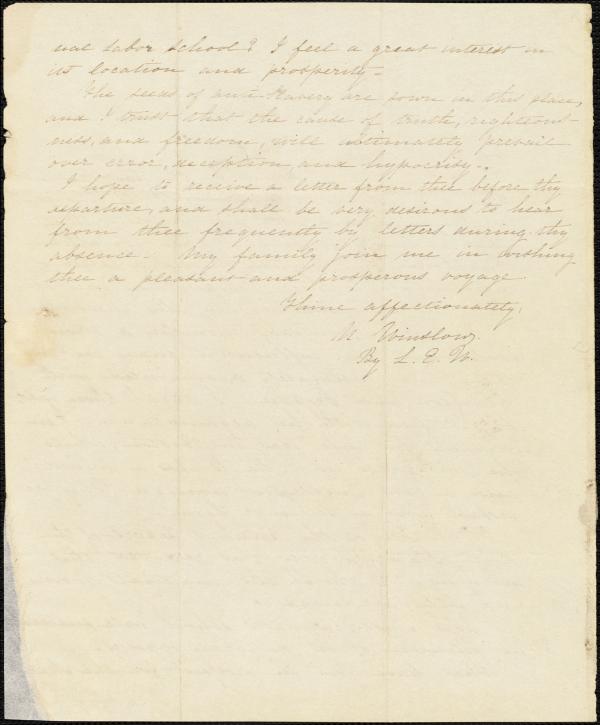 ual labor school? I feel a great interest in
its location and prosperity –
The seeds of anti-slavery are sown in this place,
and I trust that the cause of truth, righteous-
ness, and freedom, will ultimately prevail
over error, deception and hypocrisy –.
I hope to receive a letter from thee before thy
departure, and shall be very desirous to hear
from thee frequently by letters during thy
absence – My family join me in wishing
thee a pleasant and prosperous voyage
Thine affectionately,
N. Winslow.
By L. E. W.